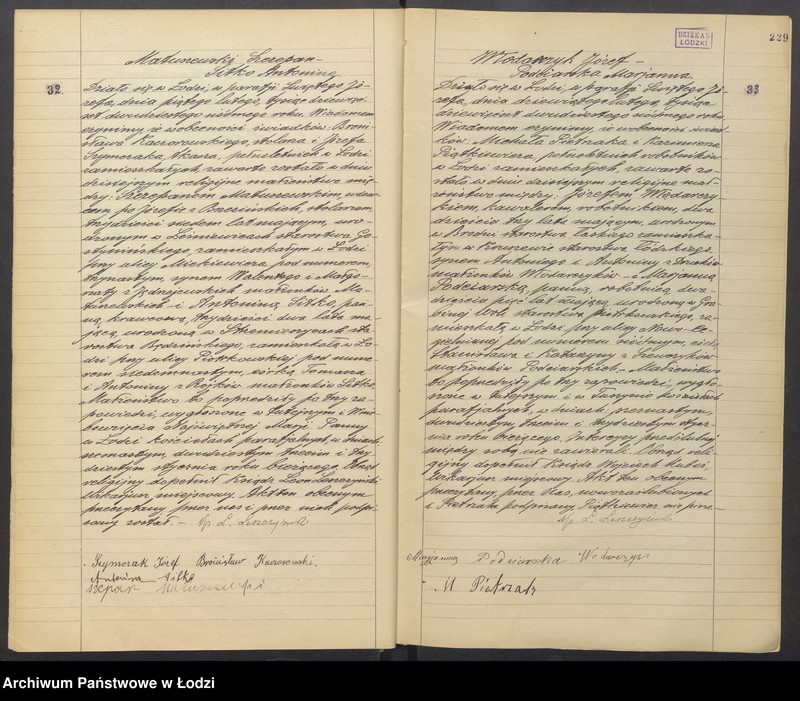 Matuszewski Szczepan –
Sitko Antonina
32
Działo się w Łodzi, w parafji Świętego Jó-
zefa, dnia piątego lutego, tysiąc dziewięć-
set dwudziestego ósmego roku. Wiadomem
czynimy, iż w obecności świadków: Broni-
sława Kaczorowskiego, stolarza i Józefa
Szymczaka, tkacza, pełnoletnich w Łodzi
zamieszkałych, zawarte zostało w dniu
dzisiejszym religijne małżeństwo mię-
dzy: Szczepanem Matuszewskim, wdow-
cem po Józefie z Brzezińskich, stolarzem,
trzydzieści siedem lat mającym, uro-
dzonym w starostwa Go-
stynińskiego, zamieszkałym w Łodzi
przy ulicy Mickiewicza, pod numerem
trzynastym, synem Walentego i Małgo-
rzaty z Jędrzejewskich małżonków Ma-
tuszewskich – i Antoniną Sitko, pan-
ną, krawcową, trzydzieści dwa lata ma-
jącą, urodzoną w Strzemieszycach sta-
rostwa Będzińskiego, zamieszkałą w Ło-
dzi przy ulicy Piotrkowskiej pod nume-
rem siedemnastym, córką Tomasza
i Antoniny z Bójków małżonków Sitko.
Małżeństwo to poprzedziły po trzy za-
powiedzi, wygłoszone w tutejszym i Wnie-
bowzięcia Najświętszej Marji Panny
w Łodzi kościołach parafjalnych, w dniach:
dwudziestym trzecim i trzy-
dziestym stycznia roku bieżącego. Obrząd
religijny dopełnił Ksiądz Leon Leszczyński
Wikarjusz miejscowy. Akt ten obecnym
przeczytany przez nas i przez nich podpi-
sany został. – Xp. L. Leszczyński
Szymczak Józef Bronisław Kaczorowski.
Antonina Sitko
Szczepan Matuszewski
DZIEKAN
ŁÓDZKI
229
Włodarczyk Józef –
Podciarska Marjanna
33
Działo się w Łodzi, w parafji Świętego Jó-
zefa, dnia dziewiątego lutego, tysiąc
dziewięćset dwudziestego ósmego roku.
Wiadomem czynimy, iż w obecności świad-
ków: Michała Pietrzaka i Kazimierza
Piątkiewicza, pełnoletnich robotników
w Łodzi zamieszkałych, zawarte zo-
stało w dniu dzisiejszym religijne mał-
żeństwo między: Józefem Włodarczy-
kiem, kawalerem, robotnikiem, dwa-
dzieścia trzy lata mającym, urodzonym
w Brodni starostwa Łaskiego zamieszka-
łym w starostwa Łódzkiego,
synem Antoniego i Antoniny z
małżonków Włodarczyków – i Marjanną
Podciarską, panną, robotnicą, dwa-
dzieścia pięć lat mającą, urodzoną w Gra-
binej Woli starostwa Piotrkowskiego, za-
mieszkałą w Łodzi przy ulicy Nowo-Ce-
gielnianej pod numerem ósmym, córką
Stanisława i Katarzyny z
małżonków Podciarskich. – Małżeństwo
to poprzedziły po trzy zapowiedzi, wygło-
szone w tutejszym i w Tuszynie kościołach
parafjalnych, w dniach: szesnastym,
dwudziestym trzecim i trzydziestym stycz-
nia roku bieżącego. Intercyzy przedślubnej
między sobą nie zawierali. Obrząd reli-
gijny dopełnił Ksiądz Wojciech
Wikarjusz miejscowy. Akt ten obecnym
przeczytany, przez Nas, nowozaślubionych
i Pietrzaka podpisany Piątkiewicz nie
Xp. L. Leszczyński
Marjanna Podciarska Włodarczyk
M Pietrzak
Archiwum Państwowe w Łodzi